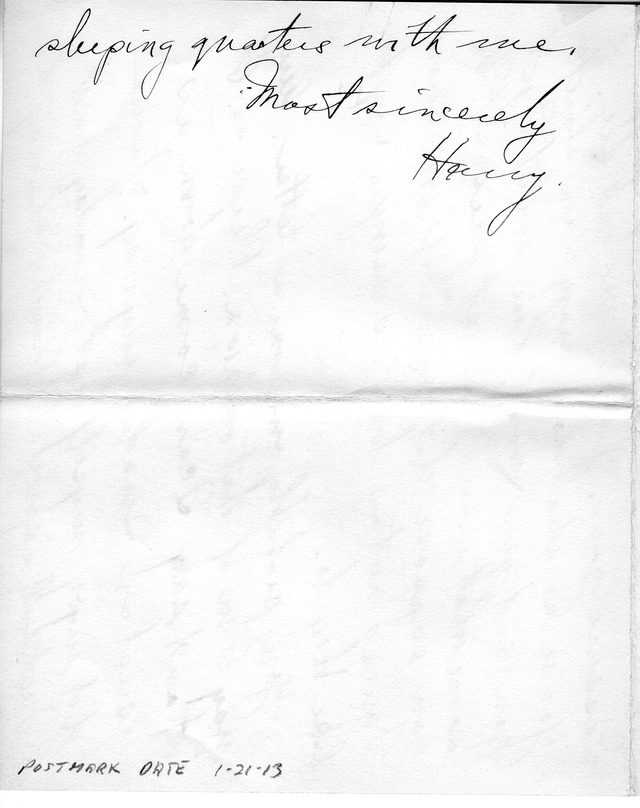 sleeping quarters with me.
Most sincerely
Harry.
POSTMARK DATE 1-21-13